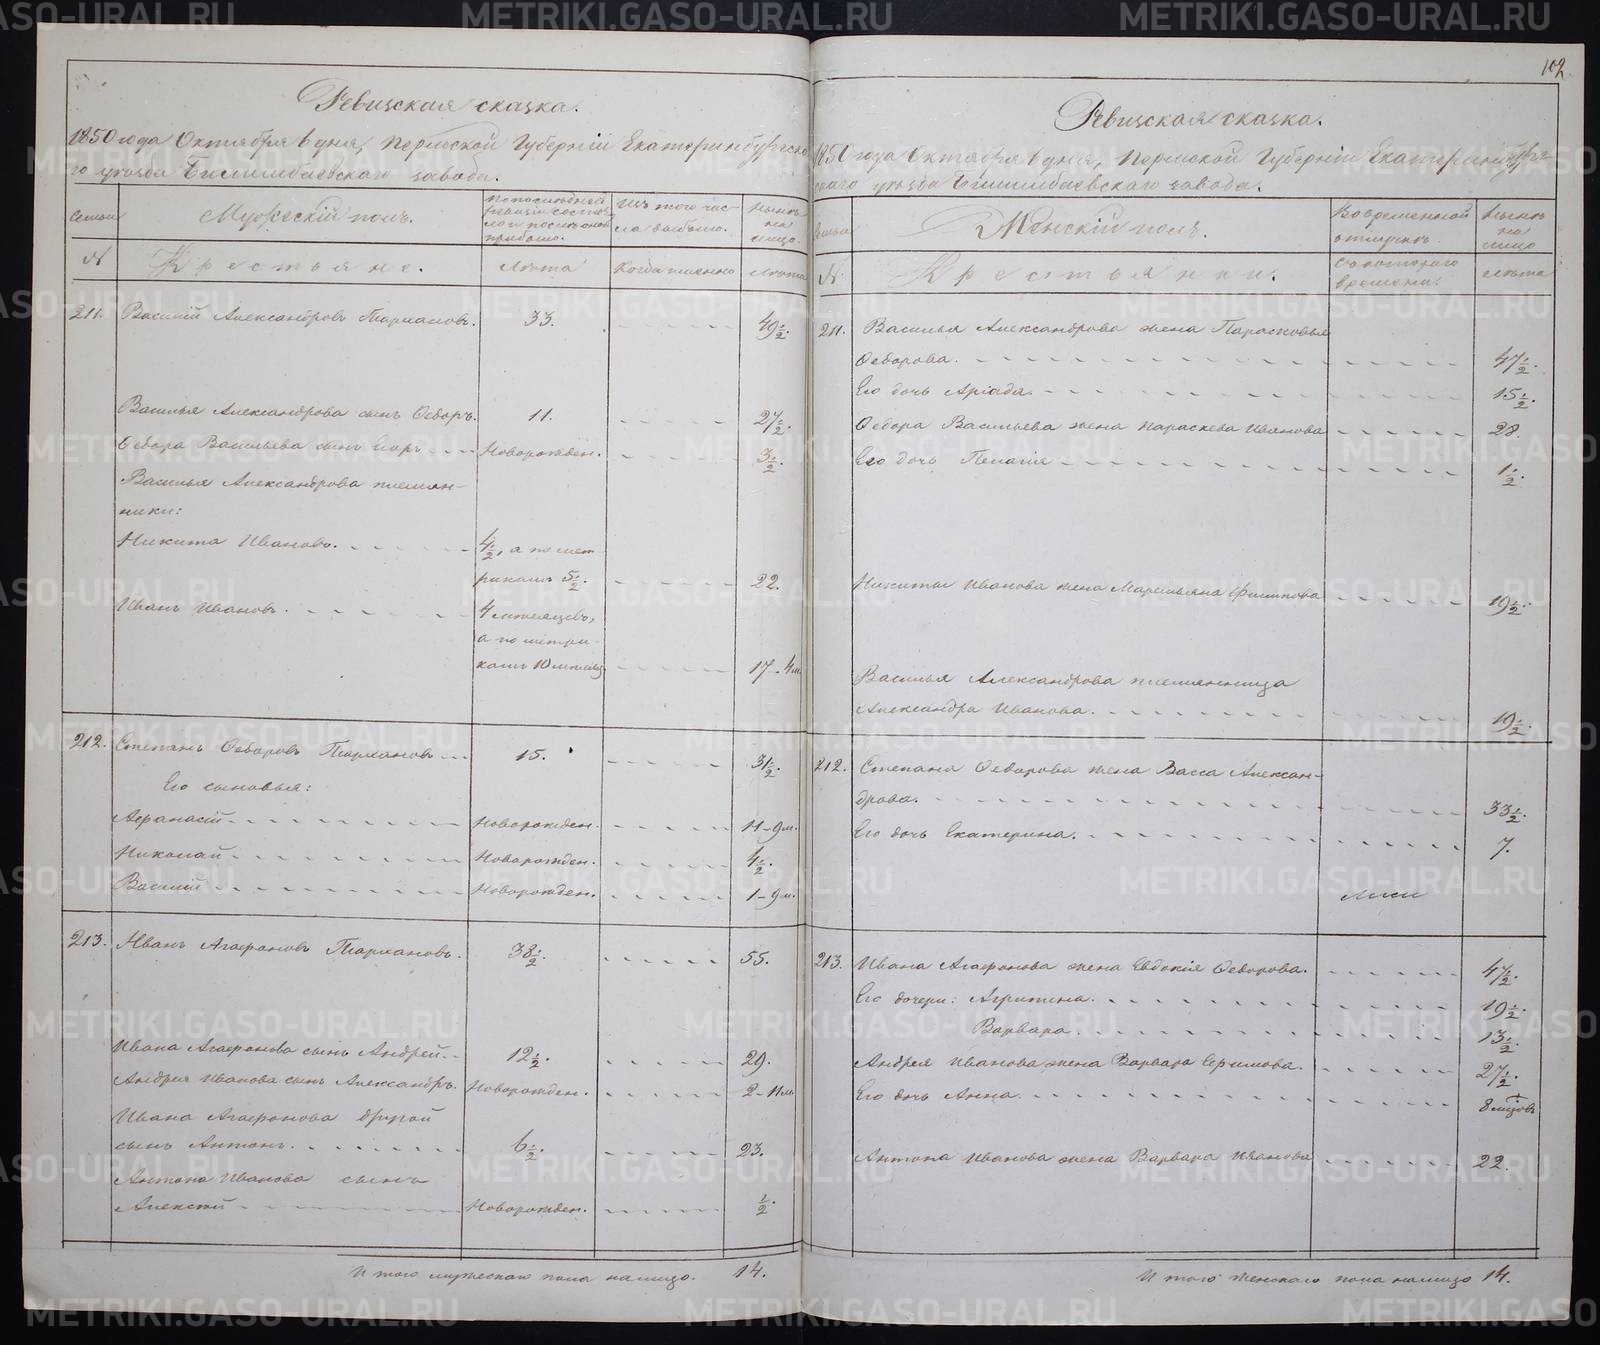 102
Ревизская сказка.
1850 года Октября 6 дня, Пермской Губернiи Екатеринбургска-
го уезда Билимбаевскаго завода.
Семьи
Мужескiй полъ.
Изъ того чис-
ла выбыло.
Нынѣ
на
лицо.
№
Крестьяне.
Лѣта
Когда именно
Лѣта
211. Василiй Александровъ Тархановъ. 33. 49 1/2.
Василья Александрова сынъ Ѳедоръ. 11. 27 1/2.
Ѳедора Васильева сынъ Егоръ Новорожден. 3 1/2.
Василья Александрова племян-
ники:
Никита Ивановъ. 4 1/2, а по мет-
рикамъ 5 1/2. 22.
Иванъ Ивановъ. 4 мѣсяцовъ,
а по метри-
камъ 10 мѣсяц 17-4 м.
212. Степанъ Ѳедоровъ Тархановъ 15. 31 1/2.
Его сыновья:
Афанасiй Новорожден. 11-9 м.
Николай Новорожден. 4 1/2.
Василiй Новорожден. 1-9 м.
213. Иванъ Агафоновъ Тархановъ. 38 1/2. 55.
Ивана Агафонова сынъ Андрей. 12 1/2. 29.
Андрея Иванова сынъ Александръ. Новорожден. 2-11 м.
Ивана Агафонова другой
сынъ Антонъ. 6 1/2. 23.
Антона Иванова сынъ
Алексѣй Новорожден. 1/2.
И того мужескаго пола налицо. 14.
Ревизская сказка.
1850 года Октября 6 дня, Пермской Губернiи Екатеринбург-
скаго уезда Билимбаевскаго завода.
Семьи
Женскiй полъ.
Во временной
отлучкѣ.
Нынѣ
на
лицо
№
Крестьянки.
Съ котораго
времени.
Лѣта
211. Василья Александрова жена Парасковья
Ѳедорова. 47 1/2.
Его дочь Арiада. 15 1/2.
Ѳедора Васильева жена Параскева Иванова 28.
Его дочь Пелагiя 1 1/2.
Никиты Иванова жена Маремьяна Филипова 19 1/2.
Василья Александрова племянница
Александра Иванова. 19 1/2.
212. Степана Ѳедорова жена Васса Алексан-
дрова. 33 1/2.
Его дочь Екатерина. 7.
213. Ивана Агафонова жена Евдокiя Ѳедорова. 47 1/2.
Его дочери: Агрипина. 19 1/2.
Варвара. 13 1/2.
Андрея Иванова жена Варвара Ефимова. 27 1/2.
Его дочь Анна. 8 мѣсцов
Антона Иванова жена Варвара Иванова 22.
И того женскаго пола налицо 14.
METRIKI.GASO-URAL.RU